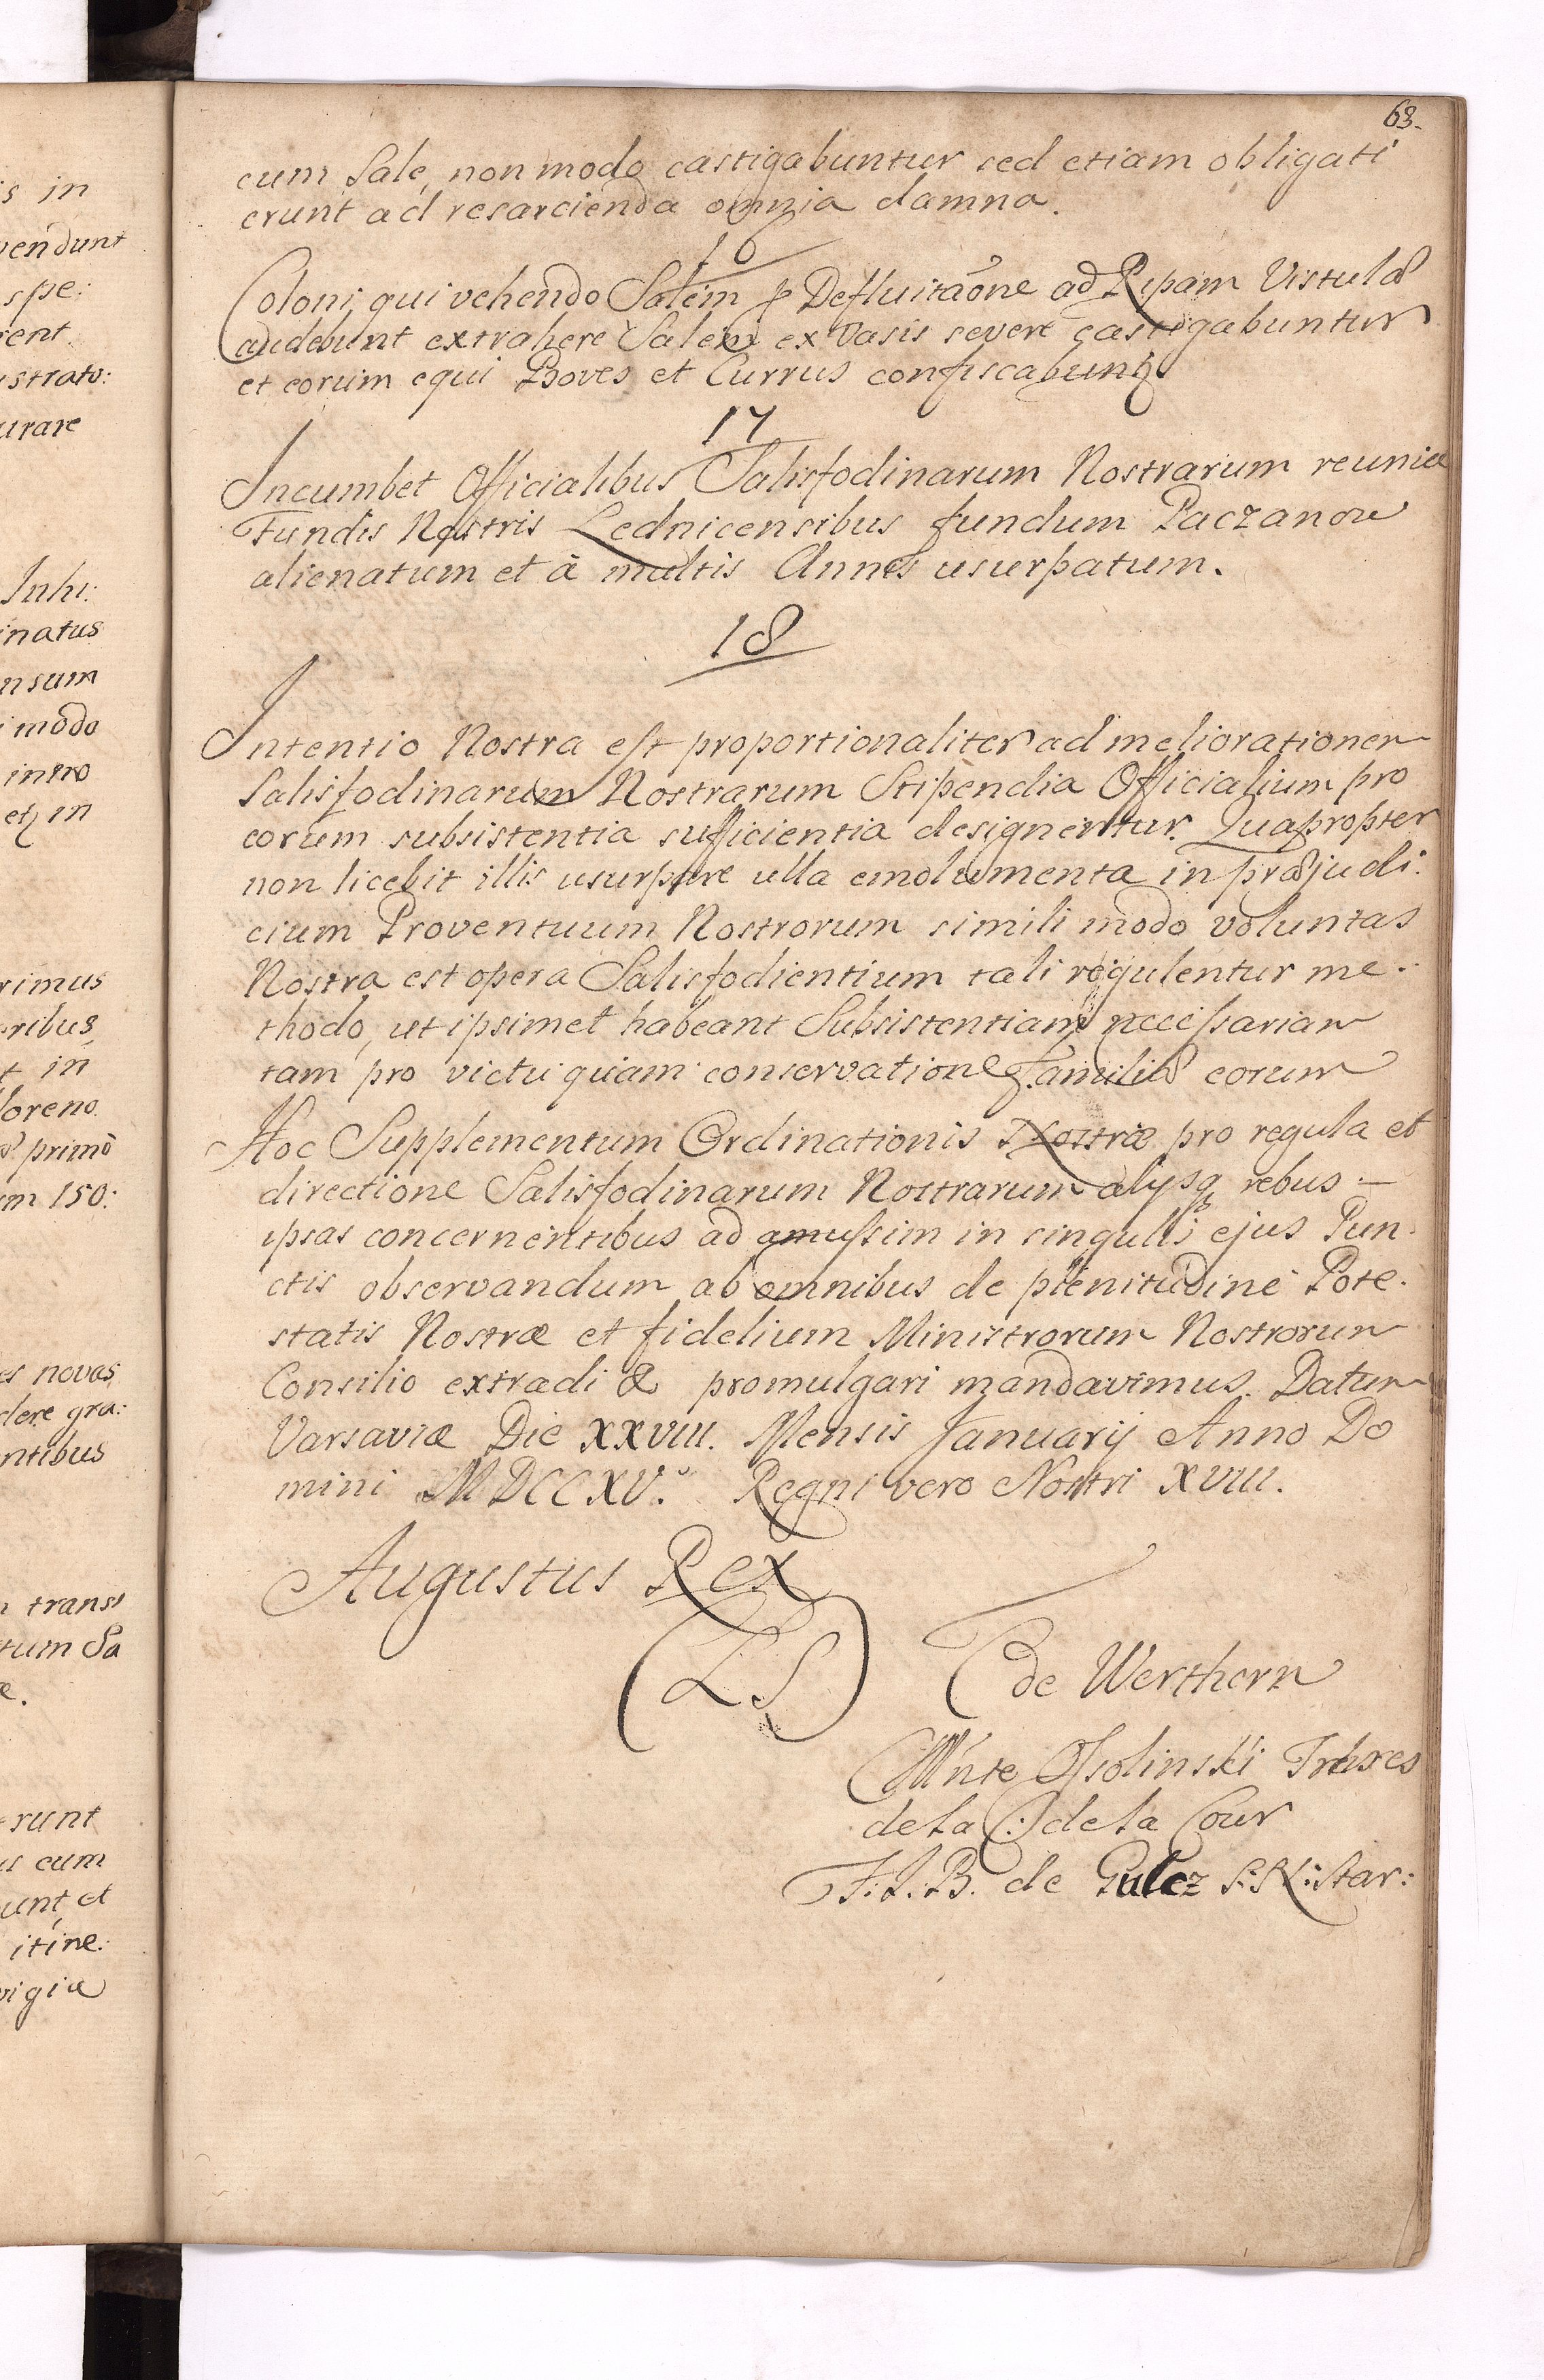 is in
vendunt
spe:
rent
ustrato:
urare
Inhi:
inatus
nsum
modo
intro
et in
rimus
oribus
t in
loreno
primò
m 150:
es novas
dere gra:
ntibus
n trans
tum Sa
e.
runt
is cum
unt, et
itine:
vigiæ
63.
cum Sale, non modo castigabuntur sed etiam obligati
erunt ad resarcienda omnia damna.
16
Coloni, qui vehendo Salem p Defluitaõne ad Ripam Vistulæ
audebunt extrahere Salem ex Vasis severe castigabuntur
et eorum equi Boves et Currus confiscabunt
17
Incumbet Officialibus Salisfodinarum Nostrarum reunire
Fundis Nostris Lednicensibus fundum Paczanow
alienatum et à multis Annis usurpatum.
18
Intentio Nostra est proportionaliter ad meliorationem
Salisfodinarum Nostrarum Stipendia Officialium pro
eorum subsistentia sufficientia designentur. Quapropter
non licebit illis usurpare ulla emolumenta in præjudi:
cium Proventuum Nostrorum simili modo voluntas
Nostra est opera Salisfodientium tali regulentur me:
thodo, ut ipsimet habeant Subsistentiam necessariam
tam pro victu quam conservatione Familiæ eorum
Hoc Supplementum Ordinationis Nostræ pro regula et
directione Salisfodinarum Nostrarum alijsq rebus
ipsas concernentibus ad amussim in singulis ejus Pun:
ctis observandum ab omnibus de plenitudine Pote:
statis Nostræ et fidelium Ministrorum Nostrorum
Consilio extradi & promulgari mandavimus. Datum
Varsaviæ Die XXVIII. Mensis Januarij Anno Do
mini MDCCXV.º Regni vero Nostri XVIII.
Augustus Rex
(LS)
de Werthern
Ossolinski
de la C: de la Cour
F.I.B. de